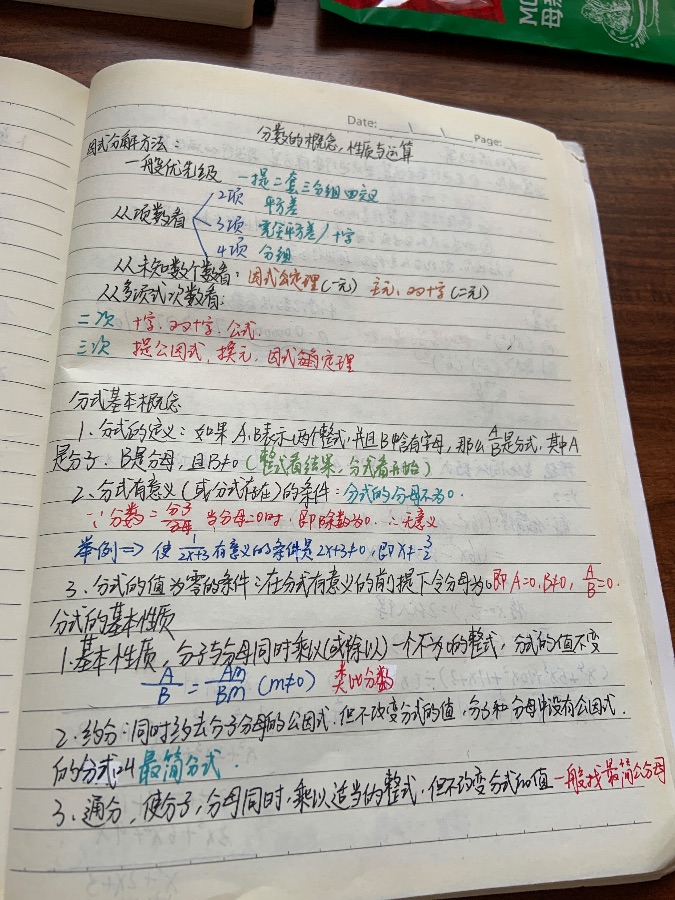 Date:
Page:
分数的概念,性质与运算
因式分解方法:
一般优先级 一提二套三分组四定义
从项数看
2项 平方差
3项 完全平方差/十字
4项 分组
从未知数个数看: 因式定理(一元) 主元、双十字(二元)
从多项式次数看:
二次 十字、双十字、公式.
三次 提公因式,换元,因式定理
分式基本概念
1、分式的定义:如果A、B表示两个整式,并且B中含有字母,那么A/B是分式,其中A
是分子、B是分母,且B≠0(整式看结果,分式看开始)
2、分式有意义(或分式存在)的条件:分式的分母不为0.
∵分数=分子/分母 当分母=0时,即除数为0.∴无意义
举例=> 使1/2x+3有意义的条件是2x+3≠0,即x≠-3/2
3、分式的值为零的条件:在分式有意义的前提下令分母为0即A=0,B≠0,A/B=0.
分式的基本性质
1.基本性质,分子与分母同时乘以(或除以)一个不为0的整式,分式的值不变
A/B=Am/Bm (m≠0) 类比分数
2.约分:同时约去分子分母的公因式,但不改变分式的值,分子和分母中没有公因式.
的分式叫最简分式.
3、通分,使分子,分母同时,乘以适当的整式,但不改变分式的值一般找最简公分母